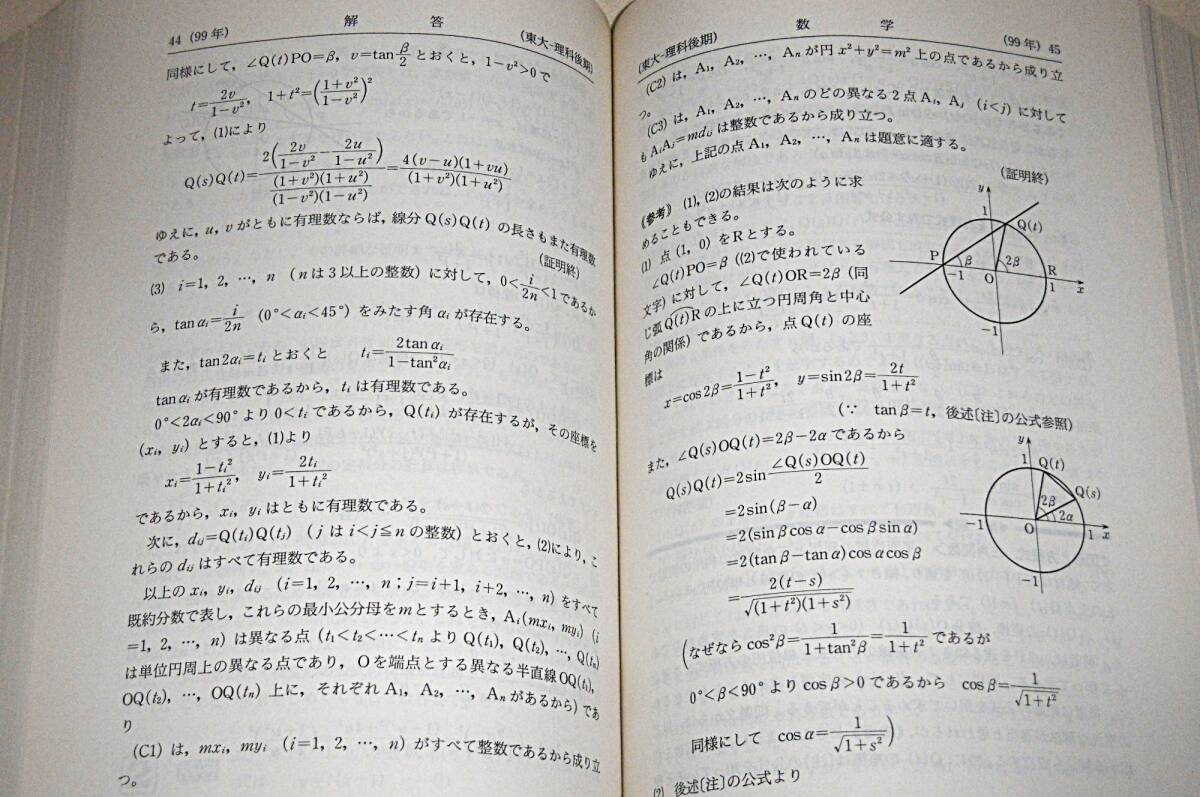 44 (99年) 解 答 (東大-理科後期)
同様にして，∠Q(t)PO=β，v=tan β/2 とおくと，1−v²>0 で
t=2v/(1−v²)， 1+t²=((1+v²)/(1−v²))²
よって，(1)により
Q(s)Q(t)=2(2v/(1−v²)−2u/(1−u²))/((1+v²)(1+u²)/((1−v²)(1−u²)))=4(v−u)(1+vu)/((1+v²)(1+u²))
ゆえに，u，vがともに有理数ならば，線分 Q(s)Q(t) の長さもまた有理数
である。 (証明終)
(3) i=1，2，…，n （nは3以上の整数）に対して，0<i/2n<1であるか
ら，tan αᵢ=i/2n (0°<αᵢ<45°) をみたす角 αᵢが存在する。
また，tan2αᵢ=tᵢとおくと tᵢ=2tan αᵢ/(1−tan²αᵢ)
tan αᵢが有理数であるから，tᵢは有理数である。
0°<2αᵢ<90°より 0<tᵢであるから，Q(tᵢ) が存在するが，その座標を
(xᵢ，yᵢ) とすると，(1)より
xᵢ=(1−tᵢ²)/(1+tᵢ²)， yᵢ=2tᵢ/(1+tᵢ²)
であるから，xᵢ，yᵢはともに有理数である。
次に，dᵢⱼ=Q(tᵢ)Q(tⱼ) （jはi<j≦nの整数）とおくと，(2)により，こ
れらのdᵢⱼはすべて有理数である。
以上のxᵢ，yᵢ，dᵢⱼ (i=1，2，…，n；j=i+1，i+2，…，n) をすべて
既約分数で表し，これらの最小公分母をmとするとき，Aᵢ(mxᵢ，myᵢ) (i
=1，2，…，n) は異なる点 (t₁<t₂<…<tₙより Q(t₁)，Q(t₂)，…，Q(tₙ)
は単位円周上の異なる点であり，Oを端点とする異なる半直線OQ(t₁)，
OQ(t₂)，…，OQ(tₙ) 上に，それぞれA₁，A₂，…，Aₙがあるから) であ
り
(C1) は，mxᵢ，myᵢ (i=1，2，…，n) がすべて整数であるから成り立
つ。
(東大-理科後期) 数 学 (99年) 45
(C2) は，A₁，A₂，…，Aₙが円 x²+y²=m² 上の点であるから成り立
つ。
(C3) は，A₁，A₂，…，Aₙのどの異なる2点Aᵢ，Aⱼ (i<j) に対して
もAᵢAⱼ=mdᵢⱼは整数であるから成り立つ。
ゆえに，上記の点A₁，A₂，…，Aₙは題意に適する。
(証明終)
《参考》 (1)，(2)の結果は次のように求
めることもできる。
(1) 点(1，0)をRとする。
∠Q(t)PO=β （(2)で使われている
文字）に対して，∠Q(t)OR=2β（同
じ弧Q(t)Rの上に立つ円周角と中心
角の関係）であるから，点Q(t) の座
標は
y
1
Q(t)
P
β
2β
R
−1
O
1
x
−1
x=cos2β=(1−t²)/(1+t²)， y=sin2β=2t/(1+t²)
(∵ tanβ=t，後述〔注〕の公式参照)
また，∠Q(s)OQ(t)=2β−2αであるから
Q(s)Q(t)=2sin ∠Q(s)OQ(t)/2
=2sin(β−α)
=2(sinβcosα−cosβsinα)
=2(tanβ−tanα)cosαcosβ
=2(t−s)/√((1+t²)(1+s²))
y
1
Q(t)
Q(s)
2β
2α
−1
O
1
x
−1
(なぜなら cos²β=1/(1+tan²β)=1/(1+t²) であるが
0°<β<90°より cosβ>0であるから cosβ=1/√(1+t²)
同様にして cosα=1/√(1+s²))
(2) 後述〔注〕の公式より